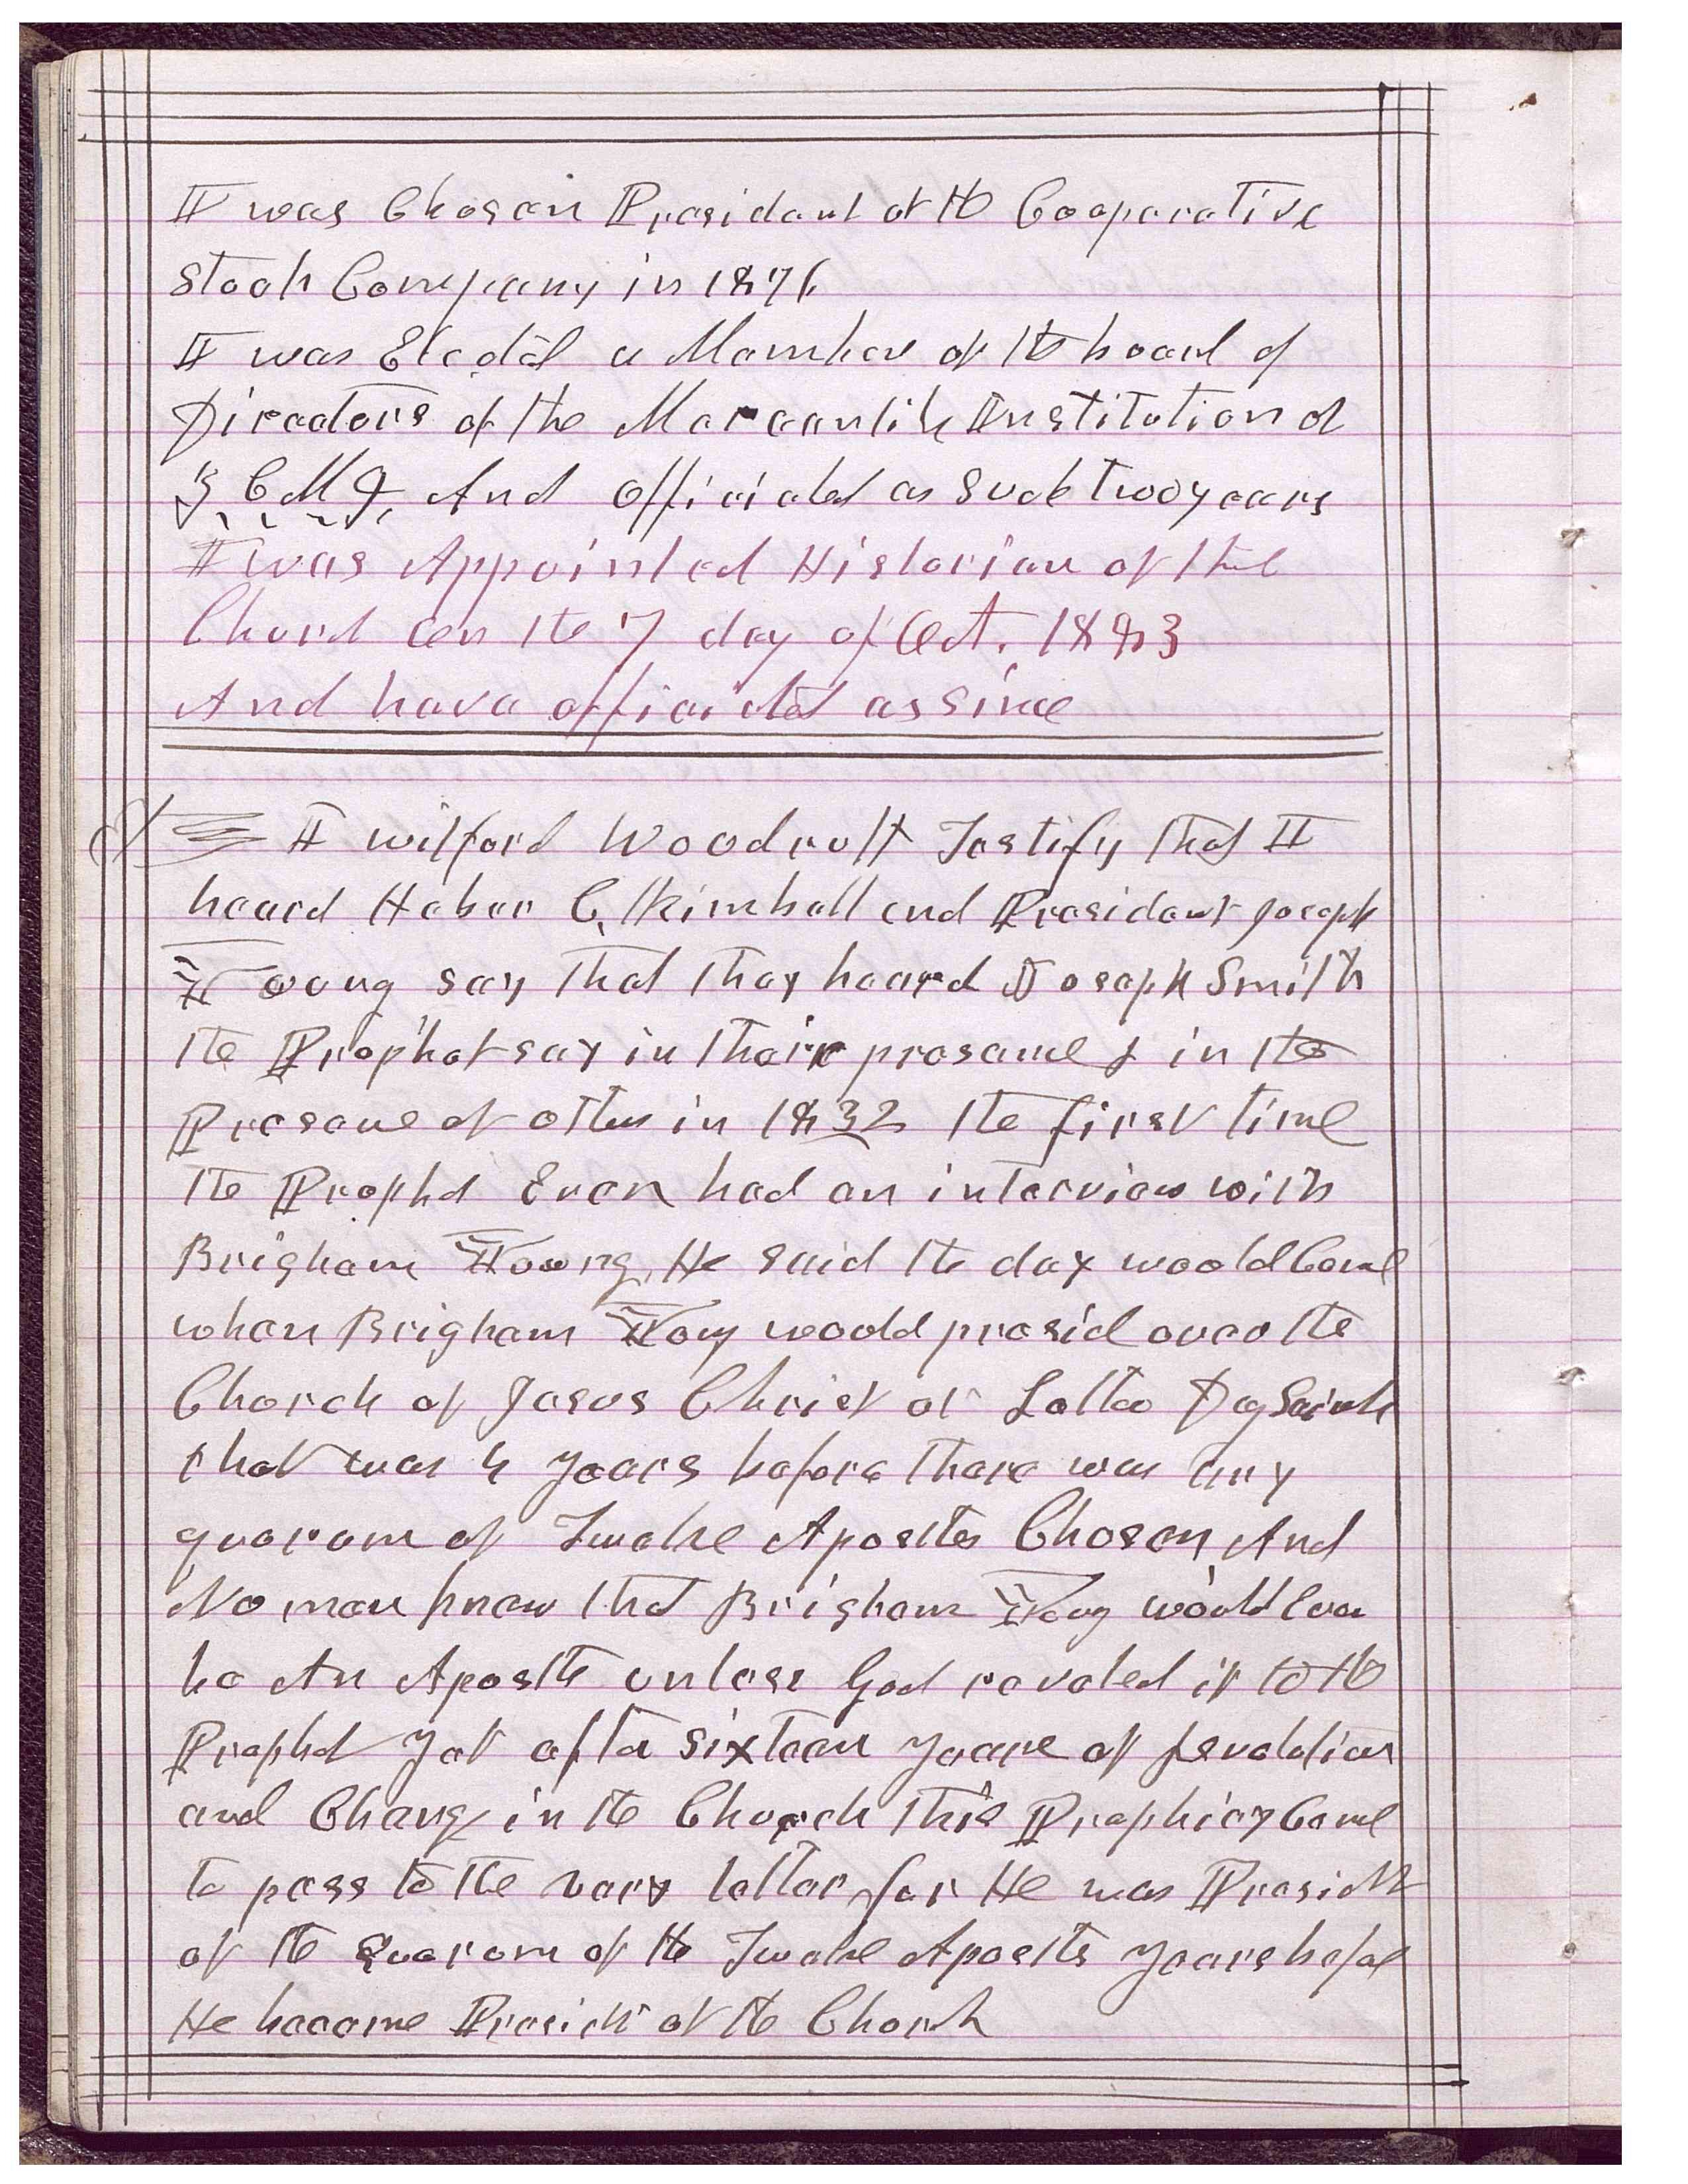 I was Chosen President of the Cooperative
Stock Company in 1876
I was Elected a Member of the board of
Directors of the Mercantile Institution of
Z C M I, And officiated as Such two years
I was Appointed Historian of the
Church on the 7 day of Oct. 1883
And have officiated as since
I Wilford Woodruff Testify that I
heard Heber C, Kimball and President Joseph
Young say that they heard Joseph Smith
the Prophet say in their presence & in the
Presence of others in 1832 the first time
the Prophet Ever had an interview with
Brigham Young, He said the day would Come
when Brigham Young would presid over the
Church of Jesus Christ of Latter Day Saints
that was 4 years before there was any
quorum of Twelve Apostles Chosen, And
No man knew that Brigham Young would Ever
be An Apostle unless God reveled it to the
Prophet Yet after sixteen years of revolution
and Change in the Church this Prophicy Come
to pass to the very letter for He was Preside
of the Quorom of the Twelve Apostles years before
He became Preside of the Church